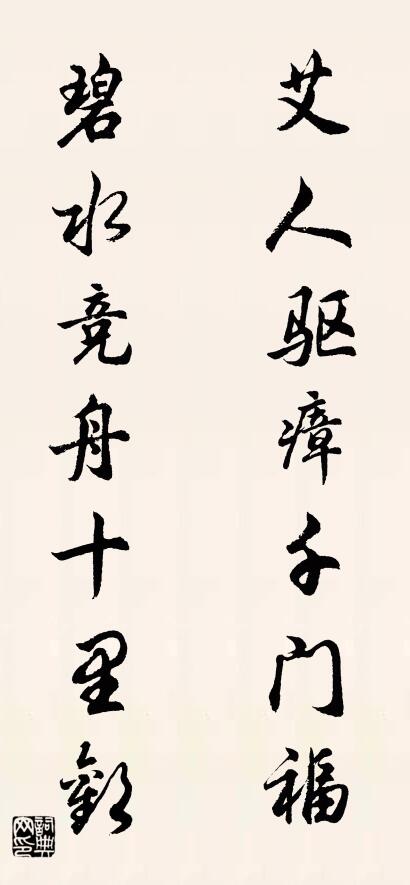 艾人驱瘴千门福
碧水竞舟十里歡
詞典网印